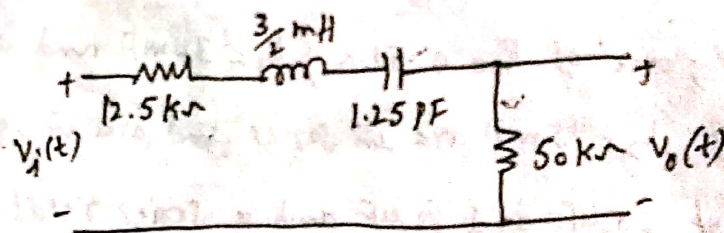 3/2 mH
+ +
12.5 KΩ 1.25 PF
Vi(t) 50 KΩ Vo(t)
- -